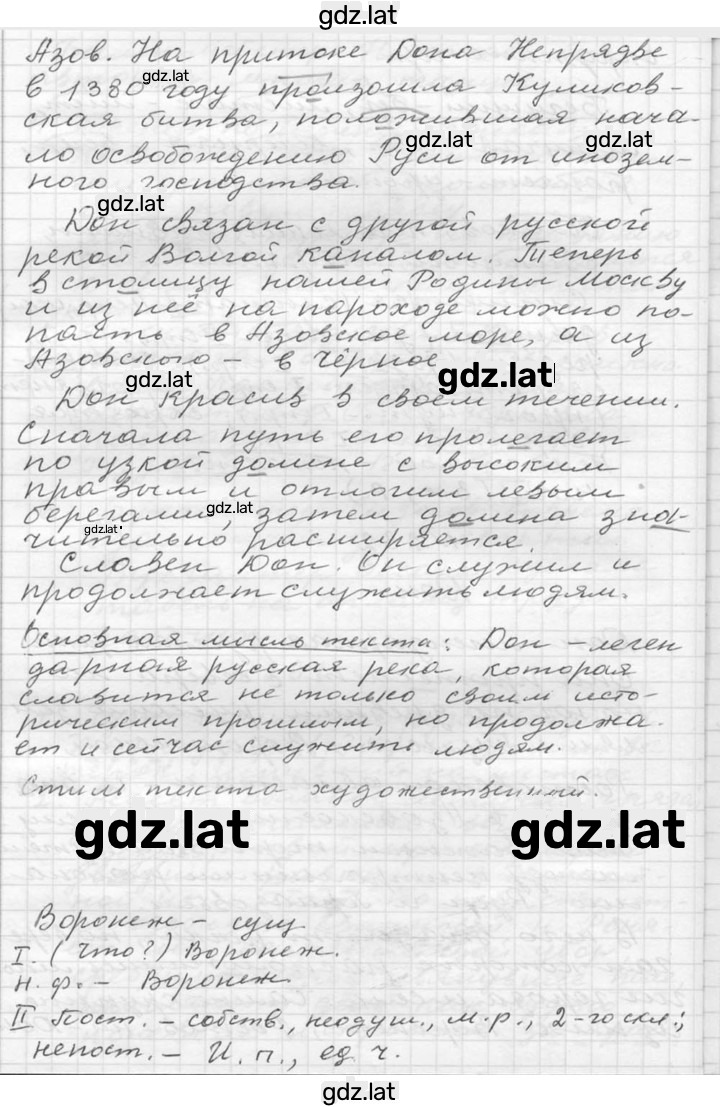 gdz.lat
Азов. На притоке Дона Непрядве
gdz.lat
в 1380 году произошла Куликов-
ская битва, положившая нача-
gdz.lat gdz.lat
ло освобождению Руси от инозем-
ного господства.
gdz.lat
Дон связан с другой русской
рекой Волгой каналом. Теперь
в столицу нашей Родины Москву
и из неё на пароходе можно по-
пасть в Азовское море, а из
Азовского – в Чёрное
gdz.lat gdz.lat
Дон красив в своём течении.
Сначала путь его пролегает
по узкой долине с высоким
правым и отлогим левым
берегами, затем долина зна-
gdz.lat gdz.lat
чительно расширяется.
Славен Дон. Он служил и
продолжает служить людям.
Основная мысль текста: Дон – леген
дарная русская река, которая
славится не только своим исто-
рическим прошлым, но продолжа-
ет и сейчас служить людям.
Стиль текста художественный.
gdz.lat gdz.lat
Воронеж – сущ
I. (Что?) Воронеж.
н.ф. – Воронеж
II Пост. – собств., неодуш., м.р., 2-го скл.;
непост. – И.п., ед.ч.
gdz.lat